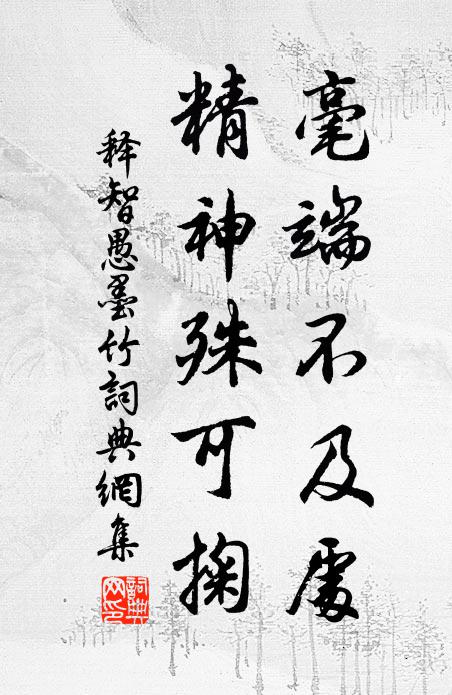 毫端不及處
精神殊可掬
释智愚墨竹詞典網集
詞典網印